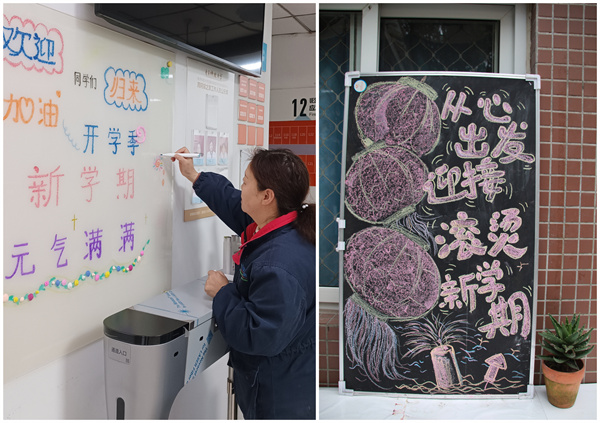 欢迎
同学们
归来
加油
开学季
新学期
元气满满
12
从心
出发
迎接
滚烫
新学
期